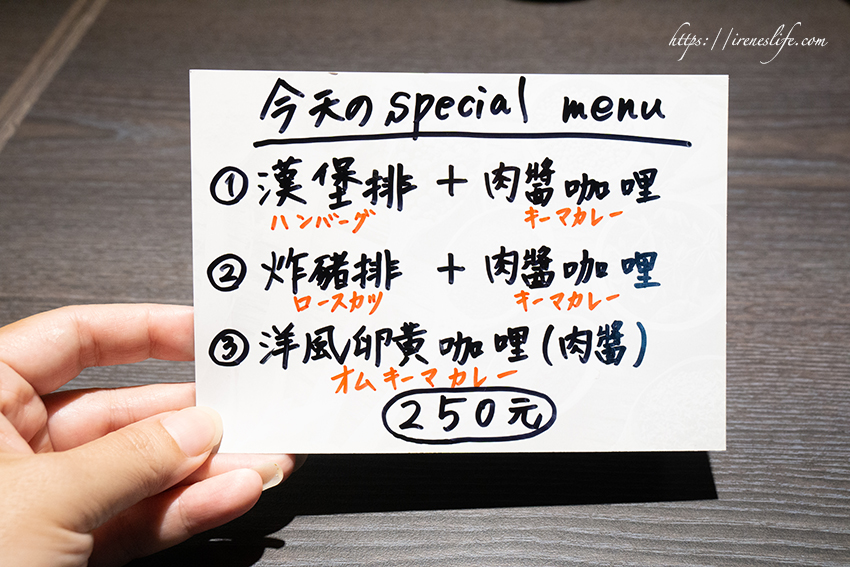 https://ireneslife.com
今天のspecial menu
①漢堡排 + 肉醬咖哩
ハンバーグ キーマカレー
②炸豬排 + 肉醬咖哩
ロースカツ キーマカレー
③洋風卵黄咖哩(肉醬)
オムキーマカレー
250元